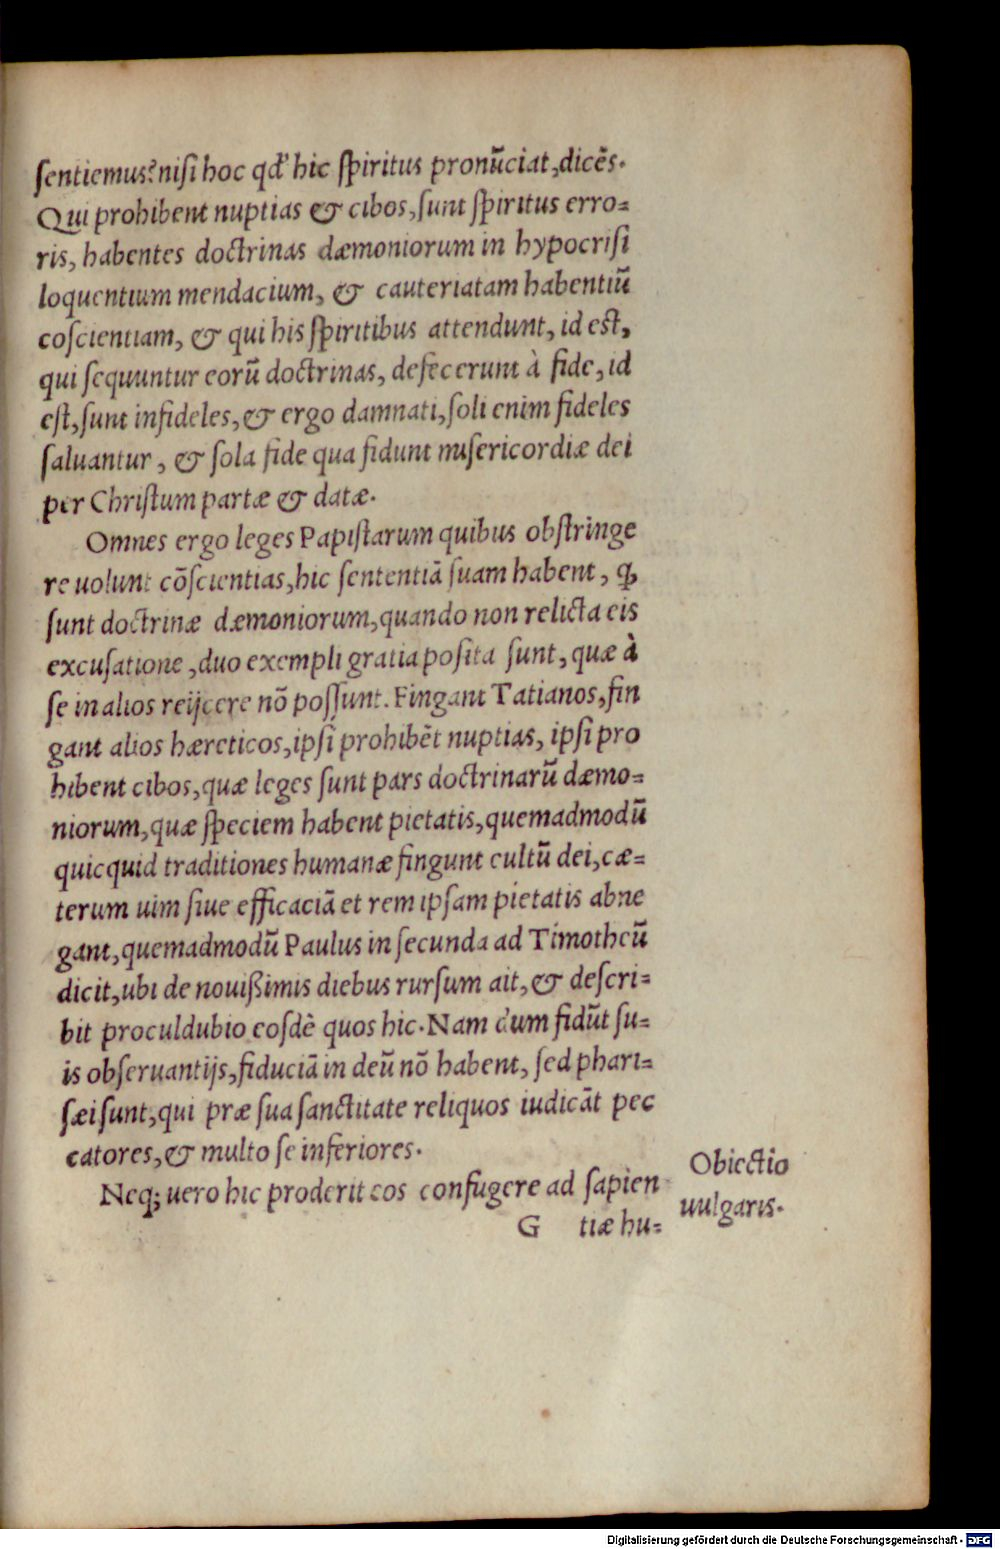 sentiemus? nisi hoc qđ hic spiritus pronũciat, dicẽs.
Qui prohibent nuptias & cibos, sunt spiritus erro=
ris, habentes doctrinas dæmoniorum in hypocrisi
loquentium mendacium, & cauteriatam habentiũ
coscientiam, & qui his spiritibus attendunt, id est,
qui sequuntur eorũ doctrinas, defecerunt à fide, id
est, sunt infideles, & ergo damnati, soli enim fideles
saluantur, & sola fide qua fidunt misericordiæ dei
per Christum partæ & datæ.
Omnes ergo leges Papistarum quibus obstringe
re uolunt cõscientias, hic sententiã suam habent, ꝙ
sunt doctrinæ dæmoniorum, quando non relicta eis
excusatione, duo exempli gratia posita sunt, quæ à
se in alios reijcere nõ possunt. Fingant Tatianos, fin
gant alios hæreticos, ipsi prohibẽt nuptias, ipsi pro
hibent cibos, quæ leges sunt pars doctrinarũ dæmo=
niorum, quæ speciem habent pietatis, quemadmodũ
quicquid traditiones humanæ fingunt cultũ dei, cæ=
terum uim siue efficaciã et rem ipsam pietatis abne
gant, quemadmodũ Paulus in secunda ad Timotheũ
dicit, ubi de nouißimis diebus rursum ait, & descri=
bit proculdubio eosdẽ quos hic. Nam dum fidũt su=
is obseruantijs, fiduciã in deũ nõ habent, sed phari=
sæi sunt, qui præ sua sanctitate reliquos iudicãt pec
catores, & multo se inferiores.
Neq; uero hic proderit eos confugere ad sapien
Obiectio
uulgaris.
G tiæ hu=
Digitalisierung gefördert durch die Deutsche Forschungsgemeinschaft - DFG